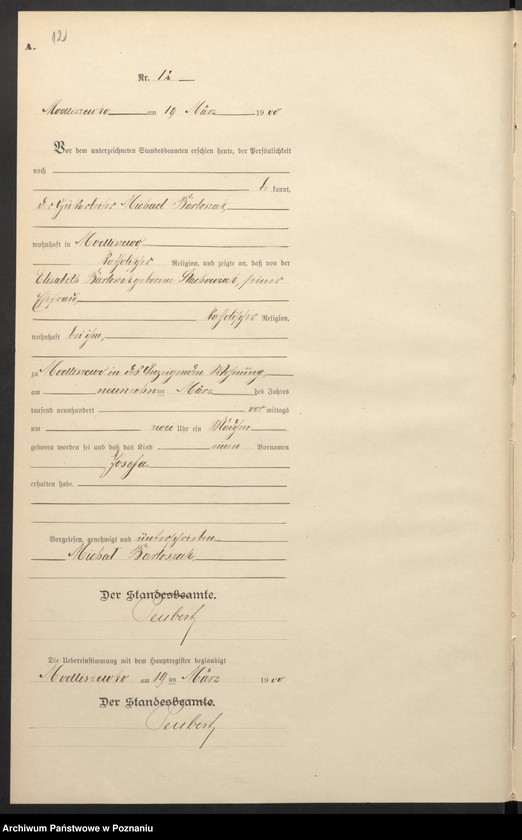 12
A.
Nr. 12
Modliszewo am 19 März 1900
Vor dem unterzeichneten Standesbeamten erschien heute, der Persönlichkeit
nach
be kannt,
der Michael Bartoszak
wohnhaft in Modliszewo
katholischer Religion, und zeigte an, daß von der
Elisabeth Bartoszak geborenen Stachowiak, seiner
Ehefrau,
katholischer Religion,
wohnhaft bei ihm,
zu Modliszewo in des Anzeigenden Wohnung,
am neunzehnten März des Jahres
tausend neunhundert vor mittags
um Uhr ein Mädchen
geboren worden sei und daß das Kind Vornamen
Josefa
erhalten habe.
Vorgelesen, genehmigt und unterschrieben
Michał Bartoszak
Der Standesbeamte.
Die Uebereinstimmung mit dem Hauptregister beglaubigt
Modliszewo am 19ten März 1900
Der Standesbeamte.
Archiwum Państwowe w Poznaniu